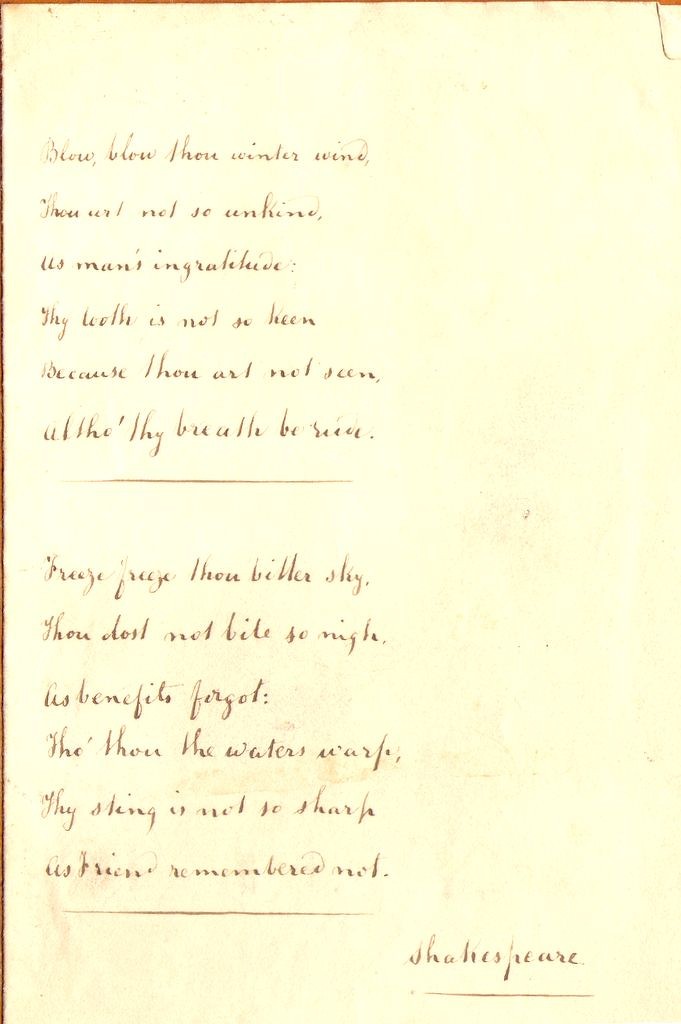 Blow, blow thou winter wind,
Thou art not so unkind,
As man's ingratitude:
Thy tooth is not so keen
Because thou art not seen,
Altho' thy breath be rude.
Freeze freeze thou bitter sky,
Thou dost not bite so nigh,
As benefits forgot:
Tho' thou the waters warp,
Thy sting is not so sharp
As Friend remembered not.
Shakespeare